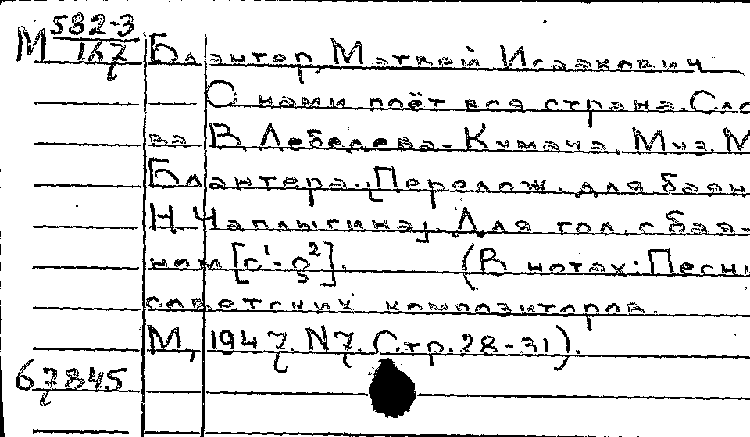 М 532-3/167 Блантер, Матвей Исаакович
С нами поёт вся страна. Сло
ва В. Лебедева-Кумача. Муз. М
Блантера. [Перелож. для баян
Н. Чаплыгина]. Для гол. с бая-
ном [c¹-g²]. (В нотах: Песни
советских композиторов.
М., 1947. N7. Стр. 28-31).
67845